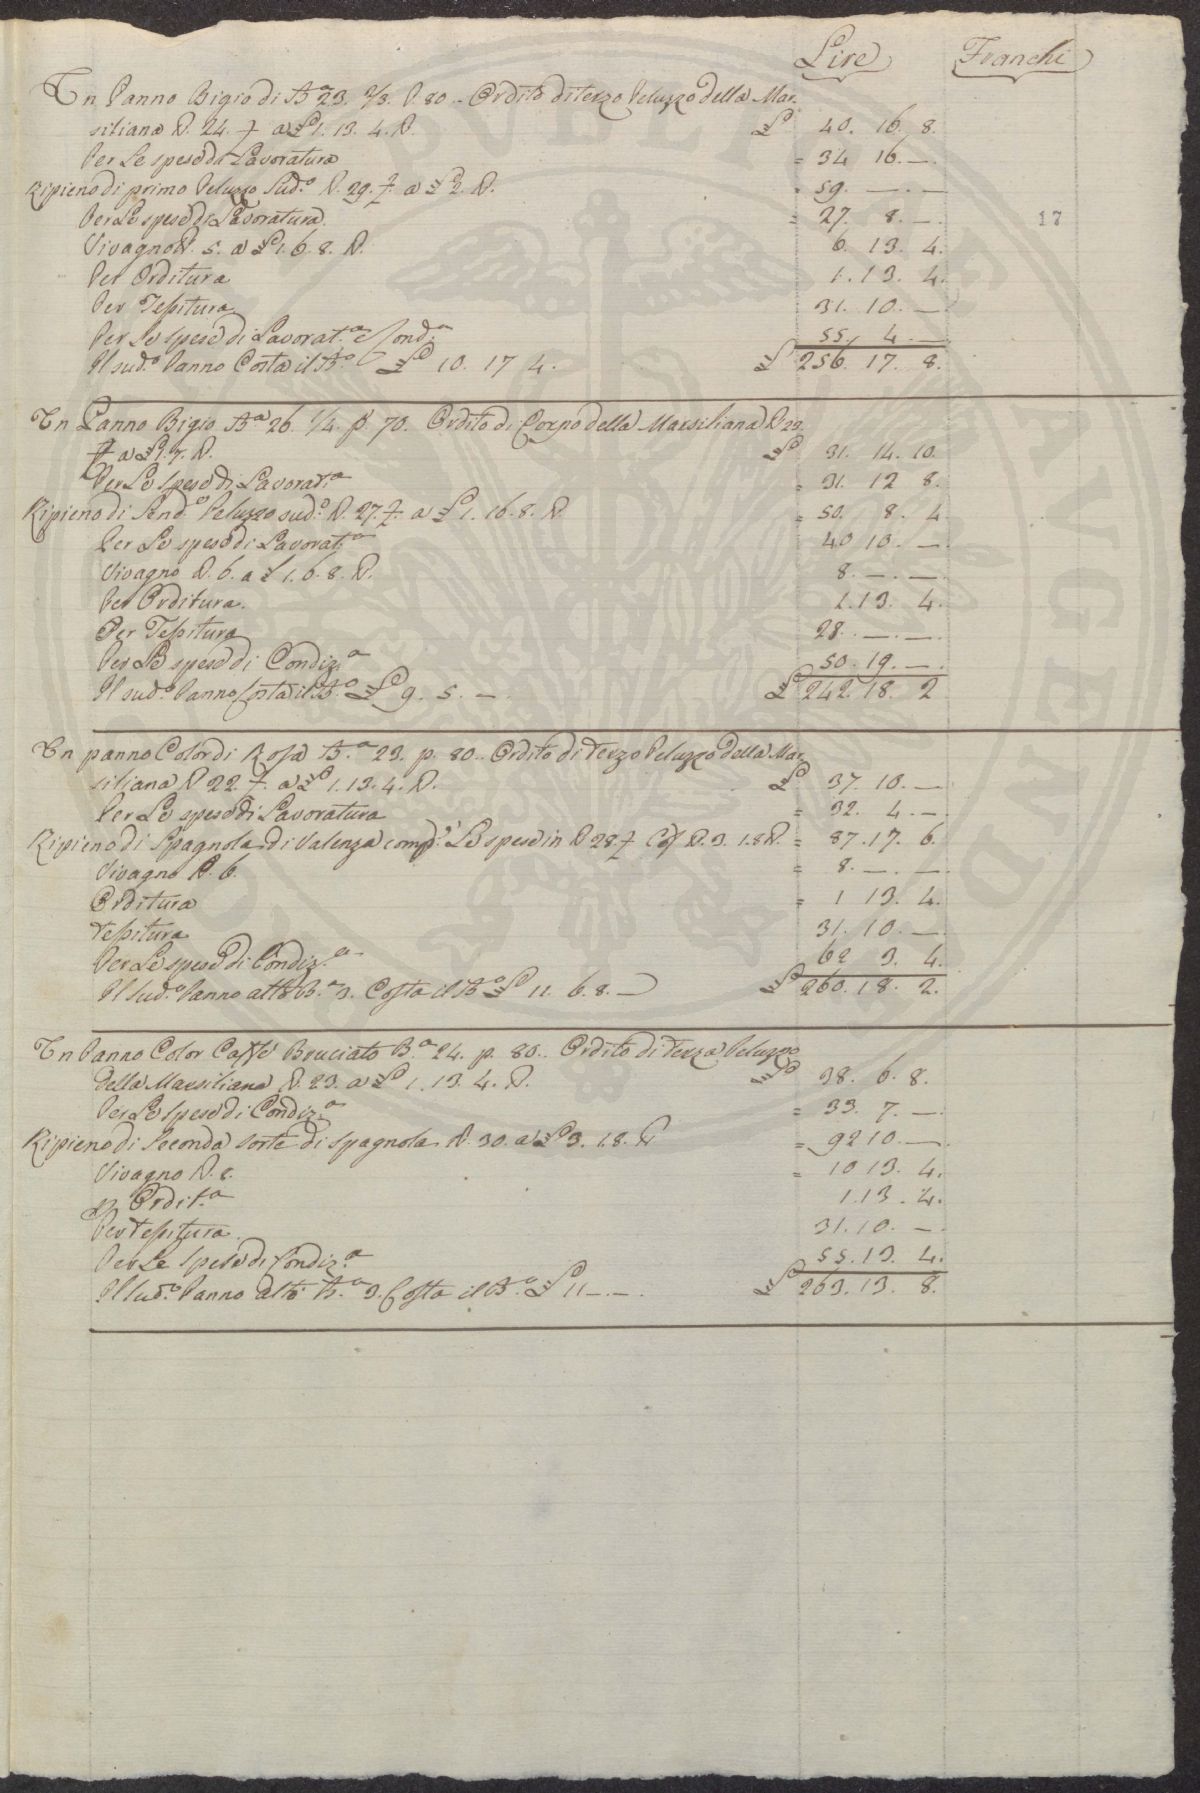 Lire Franchi
Un Panno Bigio di Ba 23. 2/3. P. 80. Ordito di terzo Peluzzo della Mar-
siliana P. 24. a £ 1. 13. 4. P. £ 40. 16. 8.
Per Le spese di Lavoratura = 34 16. —
Ripieno di primo Peluzzo Sud.o P. 29. a £ 2. P. = 59. — . —
Per Le spese di Lavoratura. = 27. 8. —
17
Vivagno P. 5. a £ 1. 6. 8. P. 6. 13. 4.
Per Orditura 1. 13. 4.
Per Tessitura 31. 10. —
Per Le spese di Lavorat.a e Cond.a 55. 4. —
Il sud.o Panno Costa il B.o £ 10. 17 4. £ 256. 17. 8.
Un Panno Bigio Ba 26. 1/4. p. 70. Ordito di Corpo della Marsiliana P. 23.
a £ 1. 7. P. £ 31. 14. 10.
Per Le spese di Lavorat.a = 31. 12 8.
Ripieno di Send.o Peluzzo sud.o P. 27. a £ 1. 16. 8. P. = 50. 8. 4
Per Le spese di Lavorat.a 40 10. —
Vivagno P. 6. a £ 1. 6. 8. P. 8. — . —
Per Orditura. 1. 13. 4.
Per Tessitura 28. — . —
Per Le spese di Condiz.a 50. 19. —
Il sud.o Panno Costa il B.o £ 9. 5. — £ 242. 18. 2
Un panno Color di Rosa B.a 23. p. 80. Ordito di terzo Peluzzo della Mar-
siliana P. 22. a £ 1. 13. 4. P. £ 37. 10. —
Per Le spese di Lavoratura = 32. 4. —
Ripieno di Spagnola di Valenza comp.o Le spese in P. 28. P. 3. 1. 8 P. = 87. 17. 6.
Vivagno P. 6. = 8. — . —
Orditura = 1 13. 4.
Tessitura 31. 10. —
Per Le spese di Condiz.a 62 3. 4.
Il Sud.o Panno alto B.a 3. Costa il B.o £ 11. 6. 8. — £ 260. 18. 2.
Un Panno Color Caffé Bruciato B.a 24. p. 80. Ordito di terza Peluzzo
della Marsiliana P. 23. a £ 1. 13. 4. P. £ 38. 6. 8.
Per Le Spese di Condiz.a = 33. 7. —
Ripieno di Seconda sorte di Spagnola P. 30. a £ 3. 1. 8. P. = 92 10. —
Vivagno P. 8. = 10 13. 4.
p Ordit.a 1. 13. 4.
Per tessitura 31. 10. —
Per Le spese di Condiz.a 55. 13. 4.
Il Sud.o Panno alto B.a 3. Costa il B.o £ 11 — . — £ 263. 13. 8.